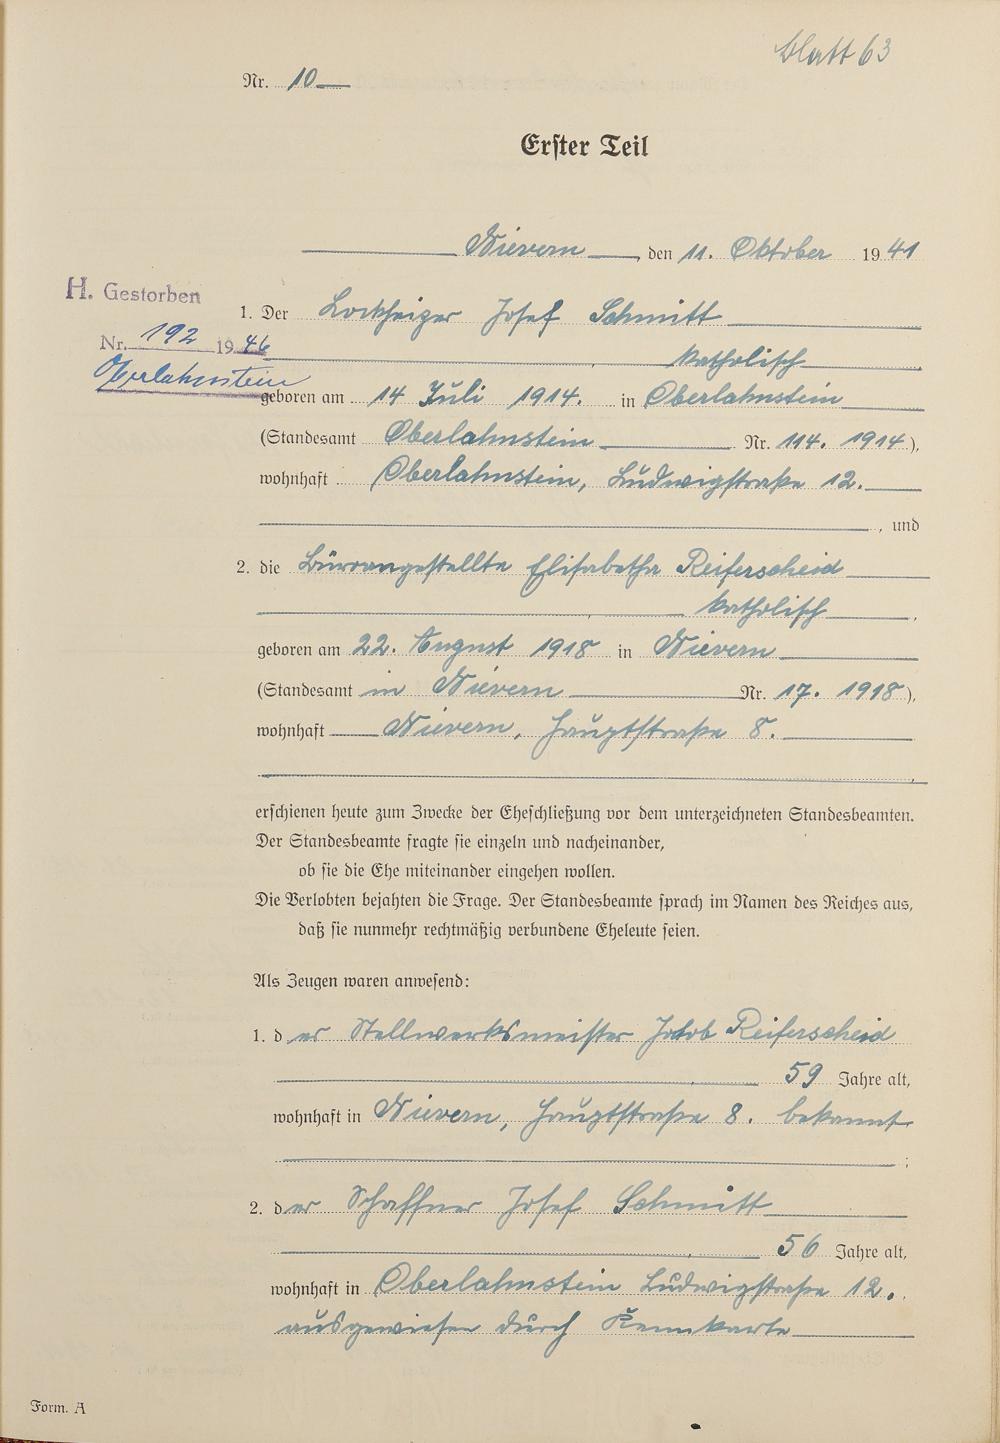 Blatt 63
Nr. 10
Erster Teil
Nievern, den 11. Oktober 1941
H. Gestorben
Nr. 192 1946
Oberlahnstein
1. Der Lockheizer Josef Schmitt
katholisch
geboren am 14 Juli 1914. in Oberlahnstein
(Standesamt Oberlahnstein Nr. 114. 1914),
wohnhaft Oberlahnstein, Ludwigstraße 12.
, und
2. die Büroangestellte Elisabetha Reiferscheid
katholisch,
geboren am 22. August 1918 in Nievern
(Standesamt in Nievern Nr. 17. 1918),
wohnhaft Nievern, Hauptstraße 8.
erschienen heute zum Zwecke der Eheschließung vor dem unterzeichneten Standesbeamten.
Der Standesbeamte fragte sie einzeln und nacheinander,
ob sie die Ehe miteinander eingehen wollen.
Die Verlobten bejahten die Frage. Der Standesbeamte sprach im Namen des Reiches aus,
daß sie nunmehr rechtmäßig verbundene Eheleute seien.
Als Zeugen waren anwesend:
1. der Stellwerksmeister Jakob Reiferscheid
59 Jahre alt,
wohnhaft in Nievern, Hauptstraße 8. bekannt
;
2. der Schaffner Josef Schmitt
56 Jahre alt,
wohnhaft in Oberlahnstein Ludwigstraße 12.
ausgewiesen durch Kennkarte
Form. A